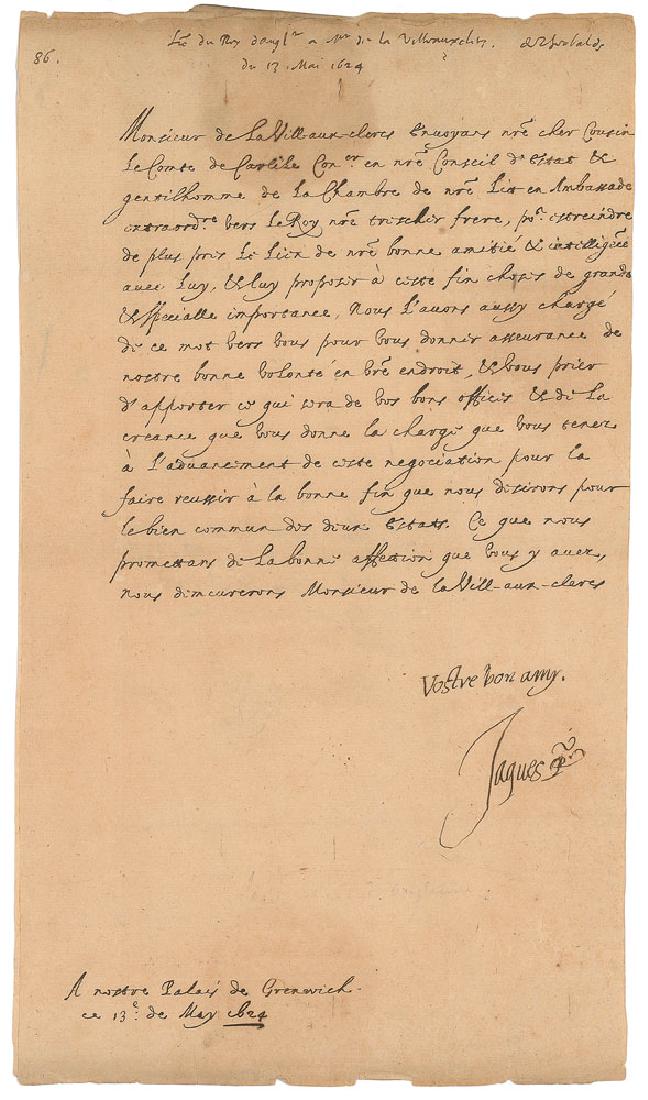 86.
Lre du Roy d'Angl.re a Mr de la Villeauxclercs.
du 13. Mai 1624
Monsieur de LaVill-aux-clercs Envoyans nr̃e cher Cousin
Le Comte de Carlile Con.er en nr̃e Conseil d'Estat &
gentilhomme de La Chambre de nr̃e Lit en Ambassade
extraord.re vers Le Roy nr̃e trescher frere, po.r estreindre
de plus pres Le Lien de nr̃e bonne amitié & intelligẽce
avec Luy, & luy proposer à ceste fin choses de grande
& specialle importance, Nous L'avons aussy chargé
de ce mot vers vous pour vous donner asseurance de
nostre bonne volonté en vr̃e endroit, & vous prier
d'apporter ce qui sera de vos bons offices & de La
creance que vous donne la charge que vous tenez
à L'advancement de ceste negociation pour la
faire reussir à la bonne fin que nous desirons pour
le bien commun des deux Estats. Ce que nous
promettans de La bonne affection que vous y avez,
nous demeurerons Monsieur de laVill-aux-clercs
Vostre bon amy.
Jaques R.
A nostre Palais de Grenwich
ce 13.e de May 1624